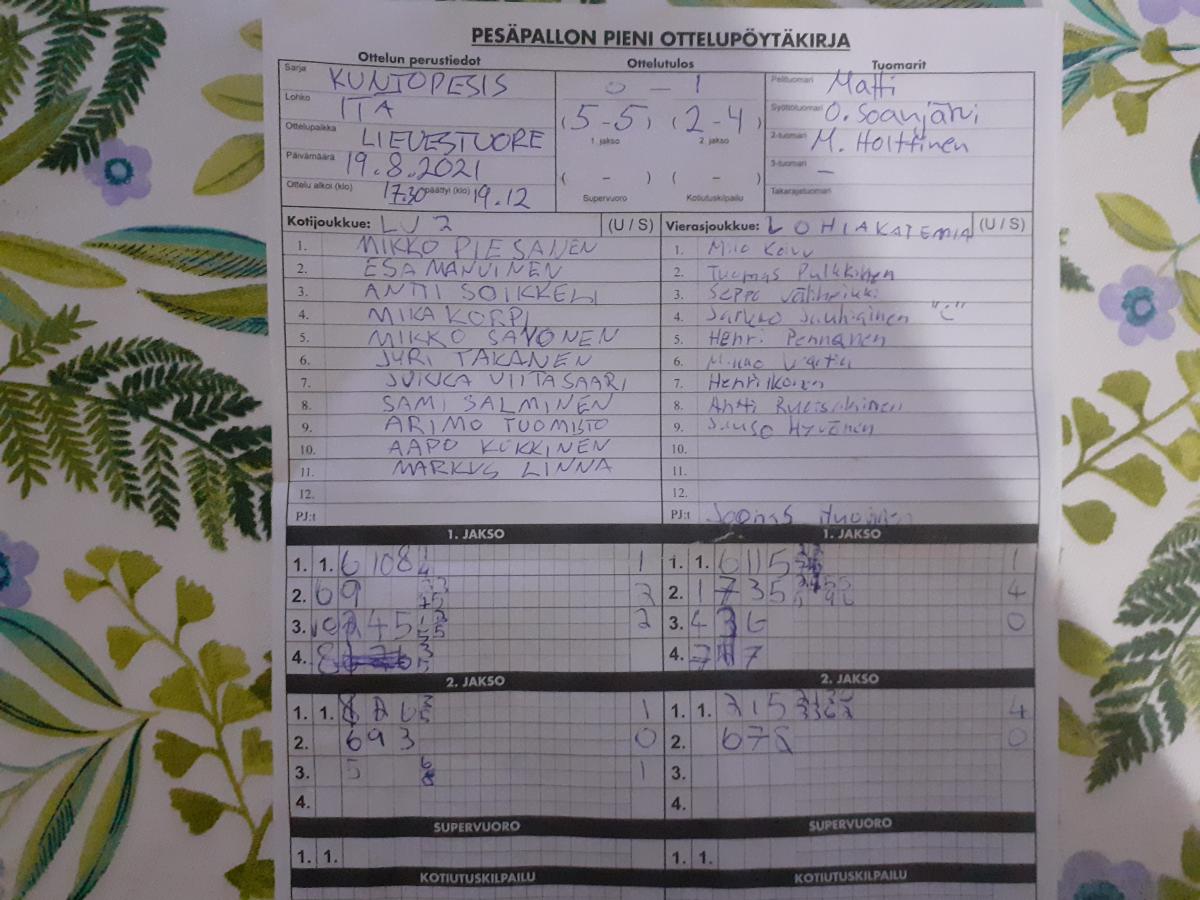 PESÄPALLON PIENI OTTELUPÖYTÄKIRJA
Ottelun perustiedot
Ottelutulos
Tuomarit
Sarja KUNTOPESIS
Lohko ITÄ
Ottelupaikka LIEVESTUORE
Päivämäärä 19.8.2021
Ottelu alkoi (klo) 17.30 päättyi (klo) 19.12
0 - 1
(5 - 5) (2 - 4)
1. jakso 2. jakso
( - ) ( - )
Supervuoro Kotiutuskilpailu
Pelituomari Matti
Syöttötuomari O. Soanjärvi
2-tuomari M. Holttinen
3-tuomari -
Takarajatuomari
Kotijoukkue: LJ 2 (U / S)
1. MIKKO PIESANEN
2. ESA MANNINEN
3. ANTTI SOIKKELI
4. MIKA KORPI
5. MIKKO SAVONEN
6. JYRI TAKANEN
7. JUKKA VIITASAARI
8. SAMI SALMINEN
9. ARIMO TUOMISTO
10. AAPO KUKKINEN
11. MARKUS LINNA
12.
Vierasjoukkue: LOHIAKATEMIA (U / S)
1. Koivu
2. Tuomas Pulkkinen
3. Seppo
4. "C"
5. Henri Pennanen
6.
7. Henri Ikonen
8. Antti
9. Hyvönen
10.
11.
12.
PJ:t
PJ:t Joonas
1. JAKSO
1. JAKSO
1. 1. 6 10 8 1
2. 6 9
3. 2
4.
1. 1. 6 11 5 1
2. 1 7 3 5 4
3. 4 3 6 0
4. 7
2. JAKSO
2. JAKSO
1. 1. 1
2. 6 9 3 0
3. 5 1
4.
1. 1. 2 1 5 4
2. 6 7 0
3.
4.
SUPERVUORO
SUPERVUORO
1. 1.
1. 1.
KOTIUTUSKILPAILU
KOTIUTUSKILPAILU